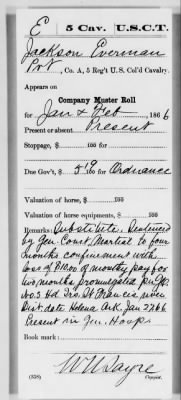 E 5 Cav. U.S.C.T.
Jackson Everman
Pvt, Co. A, 5 Reg't U. S. Col'd Cavalry.
Appears on
Company Muster Roll
for Jan & Feb, 1866
Present or absent Present
Stoppage, $ 100 for
Due Gov't, $ 519/100 for Ordnance
Valuation of horse, $ 100
Valuation of horse equipments, $ 100
Remarks: Substitute. Sentenced
by Gen. Court Martial to four
months confinement with
loss of $10.00 of monthly pay for
two months promulgated per G.O.
No. 3 Hd Qrs. St Francis river
Dist. date Helena Ark. Jan 27/66
Present in Gen. Hosp.
Book mark:
W H Sayre
(358) Copyist.